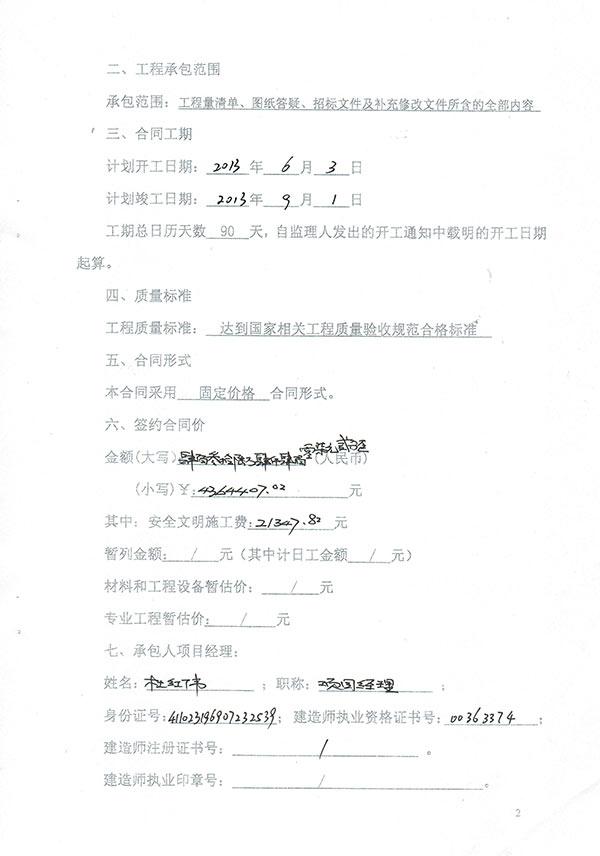 二、工程承包范围
承包范围：工程量清单、图纸答疑、招标文件及补充修改文件所含的全部内容
三、合同工期
计划开工日期：2013年 6 月 3 日
计划竣工日期：2013年 9 月 1 日
工期总日历天数 90 天，自监理人发出的开工通知中载明的开工日期
起算。
四、质量标准
工程质量标准： 达到国家相关工程质量验收规范合格标准
五、合同形式
本合同采用 固定价格 合同形式。
六、签约合同价
金额(大写)：肆佰叁拾陆万肆仟肆佰零柒元贰分(人民币)
(小写)¥:4364407.02 元
其中：安全文明施工费:21347.82 元
暂列金额： / 元（其中计日工金额 / 元）
材料和工程设备暂估价： / 元
专业工程暂估价： / 元
七、承包人项目经理：
姓名：杜红伟 ；职称：项目经理 ；
身份证号：411023196907232539；建造师执业资格证书号：00363374；
建造师注册证书号： / 。
建造师执业印章号： / 。
2